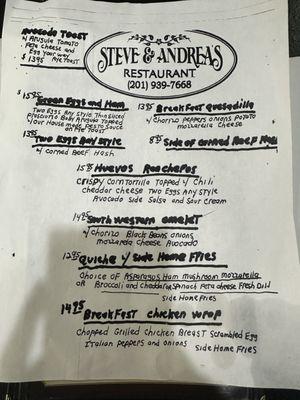 Avocado Toast
w/ Arugula Tomato
Feta cheese and
Egg your way
$1395 Rye Toast
STEVE & ANDREA'S
RESTAURANT
(201) 939-7668
$1595
Green Eggs and Ham
Two Eggs Any Style Thin Sliced
Prosciutto Baby Arugula Topped
w/ our House made Pesto Sauce
on Rye Toast
1395 Breakfast Quesadilla
w/ Chorizo Peppers onions Potato
mozzarella cheese
1395
Two Eggs Any Style
w/ corned Beef Hash
895 Side of corned Beef Hash
1595 Huevos Rancheros
crispy corn Tortilla Topped w/ Chili
cheddar cheese Two Eggs Any Style
Avocado side Salsa and Sour Cream
1495 South Western omelet
w/ Chorizo Black Beans onions
mozzarella Cheese Avocado
1295 Quiche w/ side Home Fries
Choice of Asparagus Ham mushroom mozzarella
or Broccoli and cheddar or Spinach Feta cheese Fresh Dill
Side Home Fries
1495
Breakfast chicken wrap
Chopped Grilled Chicken Breast Scrambled Egg
Italian Peppers and onions Side Home Fries